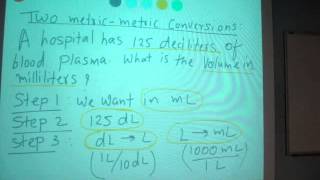 Two metric-metric conversions:
A hospital has 125 deciliters of
blood plasma. What is the volume in
milliliters?
Step 1: We want in mL
Step 2 125 dL
Step 3: dL → L L → mL
(1L/10dL) (1000mL/1L)